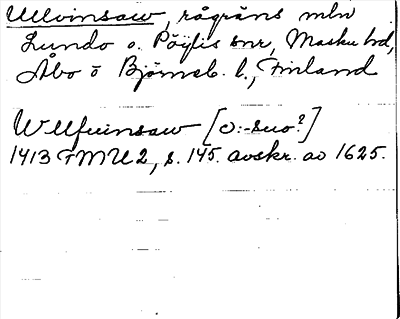 Ulvinsaw, rågräns mln
Lundo o. Pöytis snr, Masku hd,
Åbo o Björneb. l., Finland
W Ulfuinsaw [ɔ:-suo?]
1413 FMU 2, s. 145. avskr. av 1625.